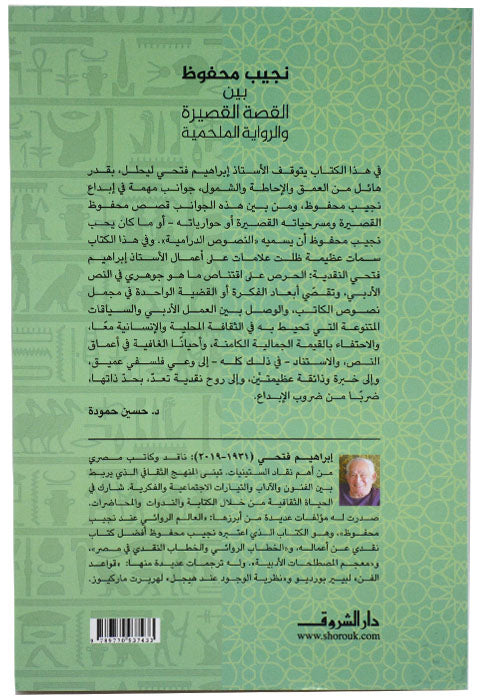 نجيب محفوظ
بين
القصة القصيرة
والرواية الملحمية
في هذا الكتاب يتوقف الأستاذ إبراهيم فتحي ليحلل، بقدر
هائل من العمق والإحاطة والشمول، جوانب مهمة في إبداع
نجيب محفوظ، ومن بين هذه الجوانب قصص محفوظ
القصيرة ومسرحياته القصيرة أو حوارياته – أو ما كان يحب
نجيب محفوظ أن يسميه «النصوص الدرامية». وفي هذا الكتاب
سمات عظيمة ظلت علامات على أعمال الأستاذ إبراهيم
فتحي النقدية: الحرص على اقتناص ما هو جوهري في النص
الأدبي، وتقصّي أبعاد الفكرة أو القضية الواحدة في مجمل
نصوص الكاتب، والوصل بين العمل الأدبي والسياقات
المتنوعة التي تحيط به في الثقافة المحلية والإنسانية معًا،
والاحتفاء بالقيمة الجمالية الكامنة، وأحيانًا الغافية في أعماق
النص، والاستناد – في ذلك كله – إلى وعي فلسفي عميق،
وإلى خبرة وذائقة عظيمتين، وإلى روح نقدية تعدّ، بحدّ ذاتها،
ضربًا من ضروب الإبداع.
د. حسين حمودة
إبراهيم فتحي (١٩٣١-٢٠١٩): ناقد وكاتب مصري
من أهم نقاد الستينيات. تبنى المنهج الثقافي الذي يربط
بين الفنون والآداب والتيارات الاجتماعية والفكرية. شارك في
الحياة الثقافية من خلال الكتابة والندوات والمحاضرات.
صدرت له مؤلفات عديدة من أبرزها: «العالم الروائي عند نجيب
محفوظ»، وهو الكتاب الذي اعتبره نجيب محفوظ أفضل كتاب
نقدي عن أعماله، و«الخطاب الروائي والخطاب النقدي في مصر»،
و«معجم المصطلحات الأدبية». وله ترجمات عديدة منها: «قواعد
الفن» لبيير بورديو و«نظرية الوجود عند هيجل» لهربرت ماركيوز.
دار الشروق
www.shorouk.com
9 789770 937433